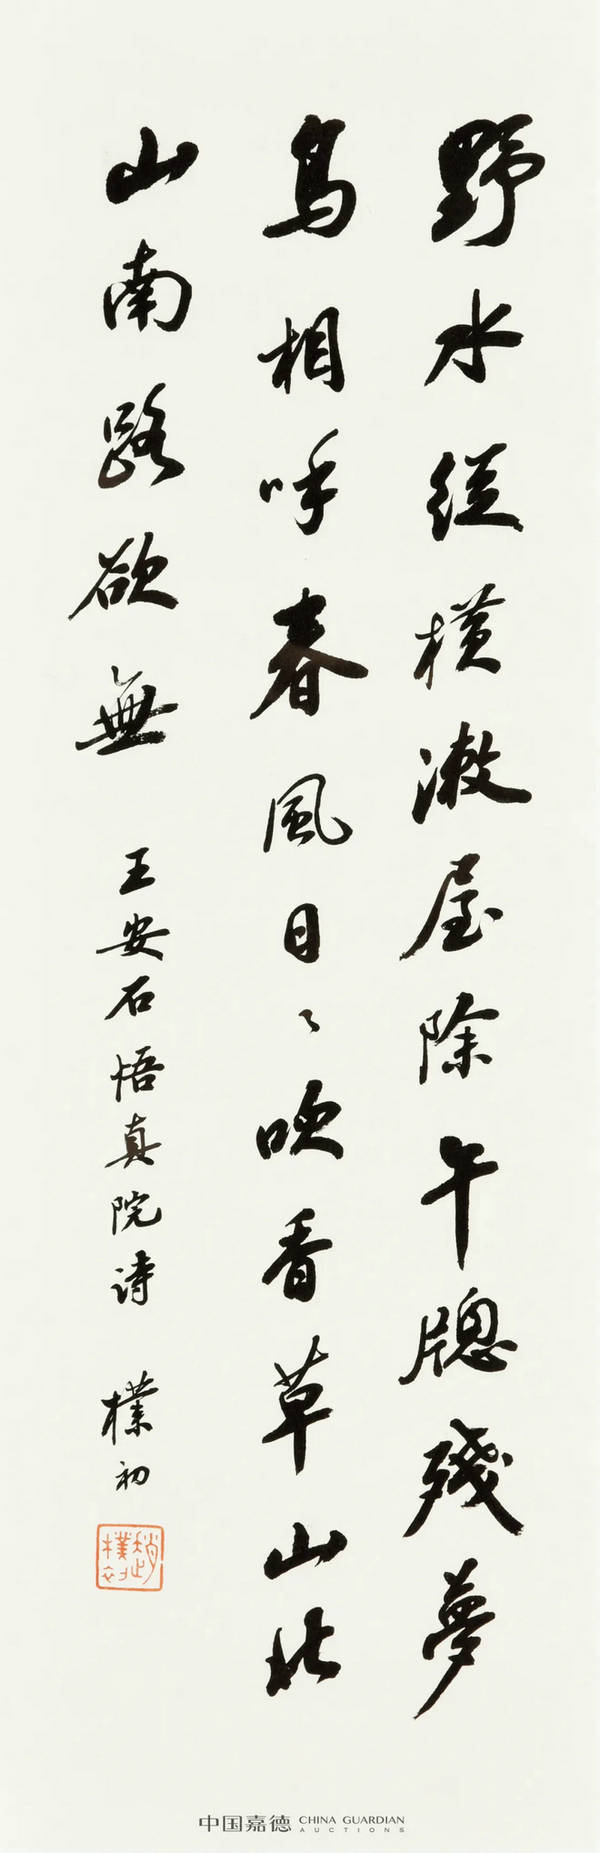 野水縱橫漱屋除午牕殘夢
鳥相呼春風日〻吹香草山北
山南路欲無
王安石悟真院詩 樸初
趙樸初
中国嘉德 CHINA GUARDIAN
AUCTIONS